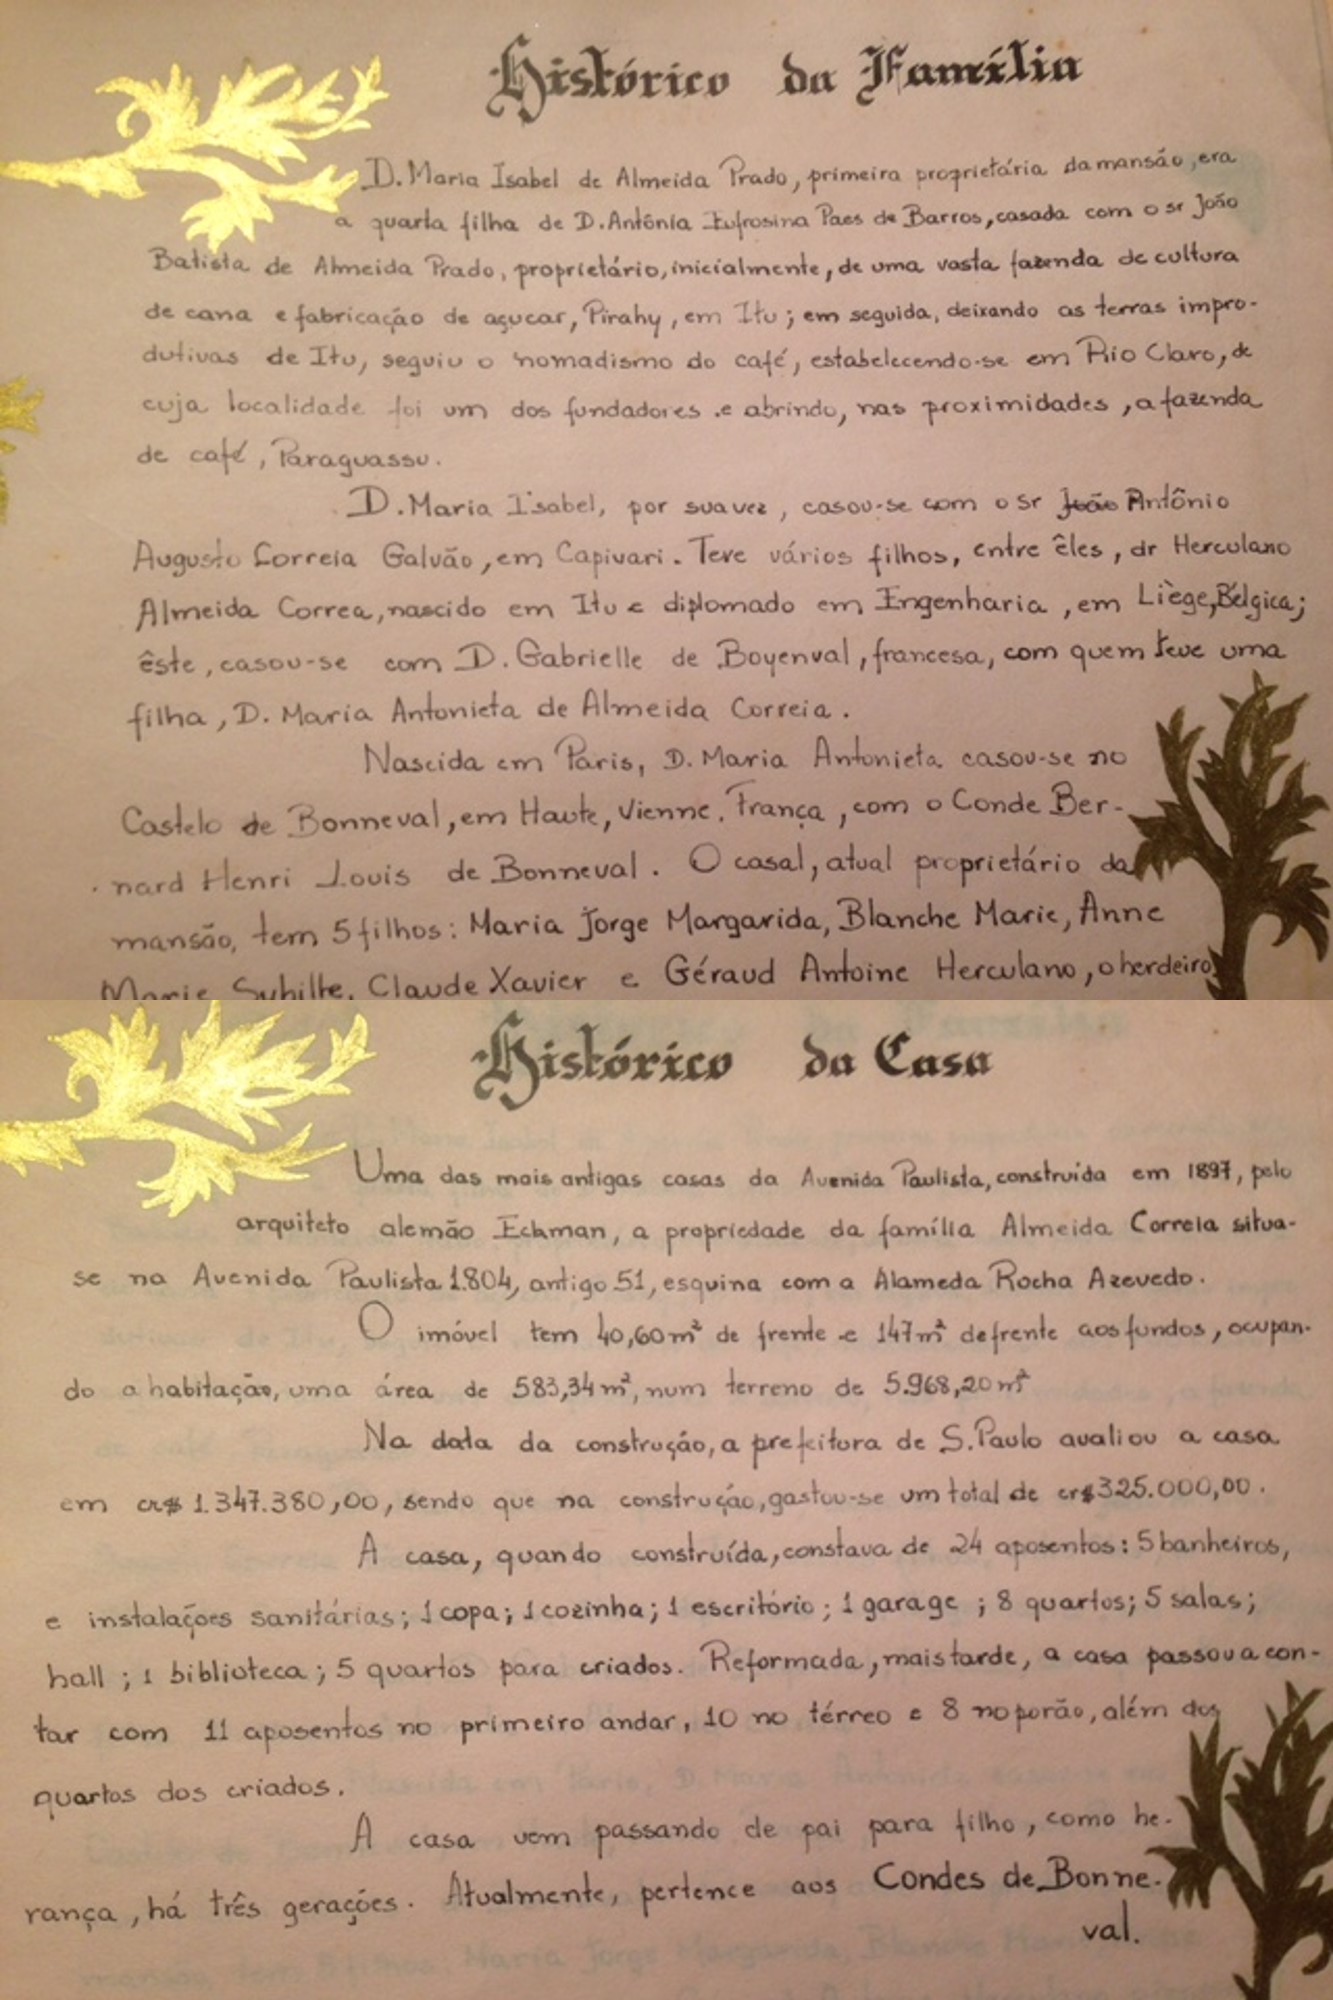 Histórico da Família
D. Maria Isabel de Almeida Prado, primeira proprietária da mansão, era
a quarta filha de D. Antônia Eufrosina Paes de Barros, casada com o sr João
Batista de Almeida Prado, proprietário, inicialmente, de uma vasta fazenda de cultura
de cana e fabricação de açucar, Pirahy, em Itu; em seguida, deixando as terras impro-
dutivas de Itu, seguiu o nomadismo do café, estabelecendo-se em Rio Claro, de
cuja localidade foi um dos fundadores e abrindo, nas proximidades, a fazenda
de café, Paraguassu.
D. Maria Isabel, por sua vez, casou-se com o sr João Antônio
Augusto Correia Galvão, em Capivari. Teve vários filhos, entre êles, dr Herculano
Almeida Correa, nascido em Itu e diplomado em Engenharia, em Liège, Bélgica;
êste, casou-se com D. Gabrielle de Boyenval, francesa, com quem teve uma
filha, D. Maria Antonieta de Almeida Correia.
Nascida em Paris, D. Maria Antonieta casou-se no
Castelo de Bonneval, em Haute, Vienne, França, com o Conde Ber-
nard Henri Louis de Bonneval. O casal, atual proprietário da
mansão, tem 5 filhos: Maria Jorge Margarida, Blanche Marie, Anne
Marie Sybille, Claude Xavier e Géraud Antoine Herculano, o herdeiro
Histórico da Casa
Uma das mais antigas casas da Avenida Paulista, construída em 1897, pelo
arquiteto alemão Eckman, a propriedade da família Almeida Correia situa-
se na Avenida Paulista 1.804, antigo 51, esquina com a Alameda Rocha Azevedo.
O imóvel tem 40,60m² de frente e 147m² de frente aos fundos, ocupan-
do a habitação, uma área de 583,34m², num terreno de 5.968,20m²
Na data da construção, a prefeitura de S. Paulo avaliou a casa
em cr$ 1.347.380,00, sendo que na construção, gastou-se um total de cr$325.000,00.
A casa, quando construída, constava de 24 aposentos: 5 banheiros,
e instalações sanitárias; 1 copa; 1 cozinha; 1 escritório; 1 garage; 8 quartos; 5 salas;
hall; 1 biblioteca; 5 quartos para criados. Reformada, mais tarde, a casa passou a con-
tar com 11 aposentos no primeiro andar, 10 no térreo e 8 no porão, além dos
quartos dos criados.
A casa vem passando de pai para filho, como he-
rança, há três gerações. Atualmente, pertence aos Condes de Bonne-
val.